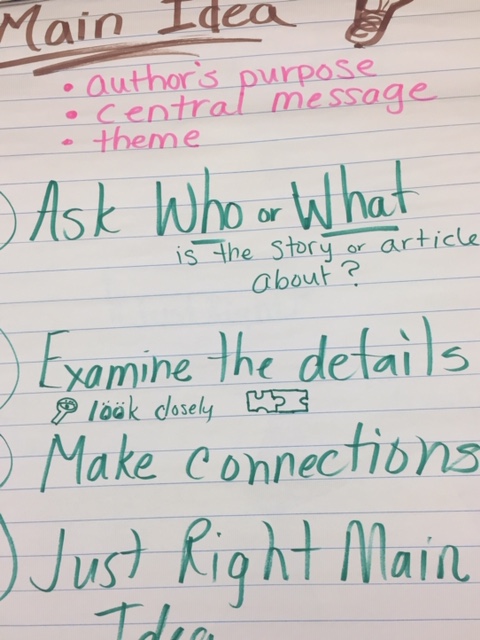 Main Idea
• author's purpose
• central message
• theme
Ask Who or What
is the story or article
about?
Examine the details
look closely
Make connections
Just Right Main
Idea